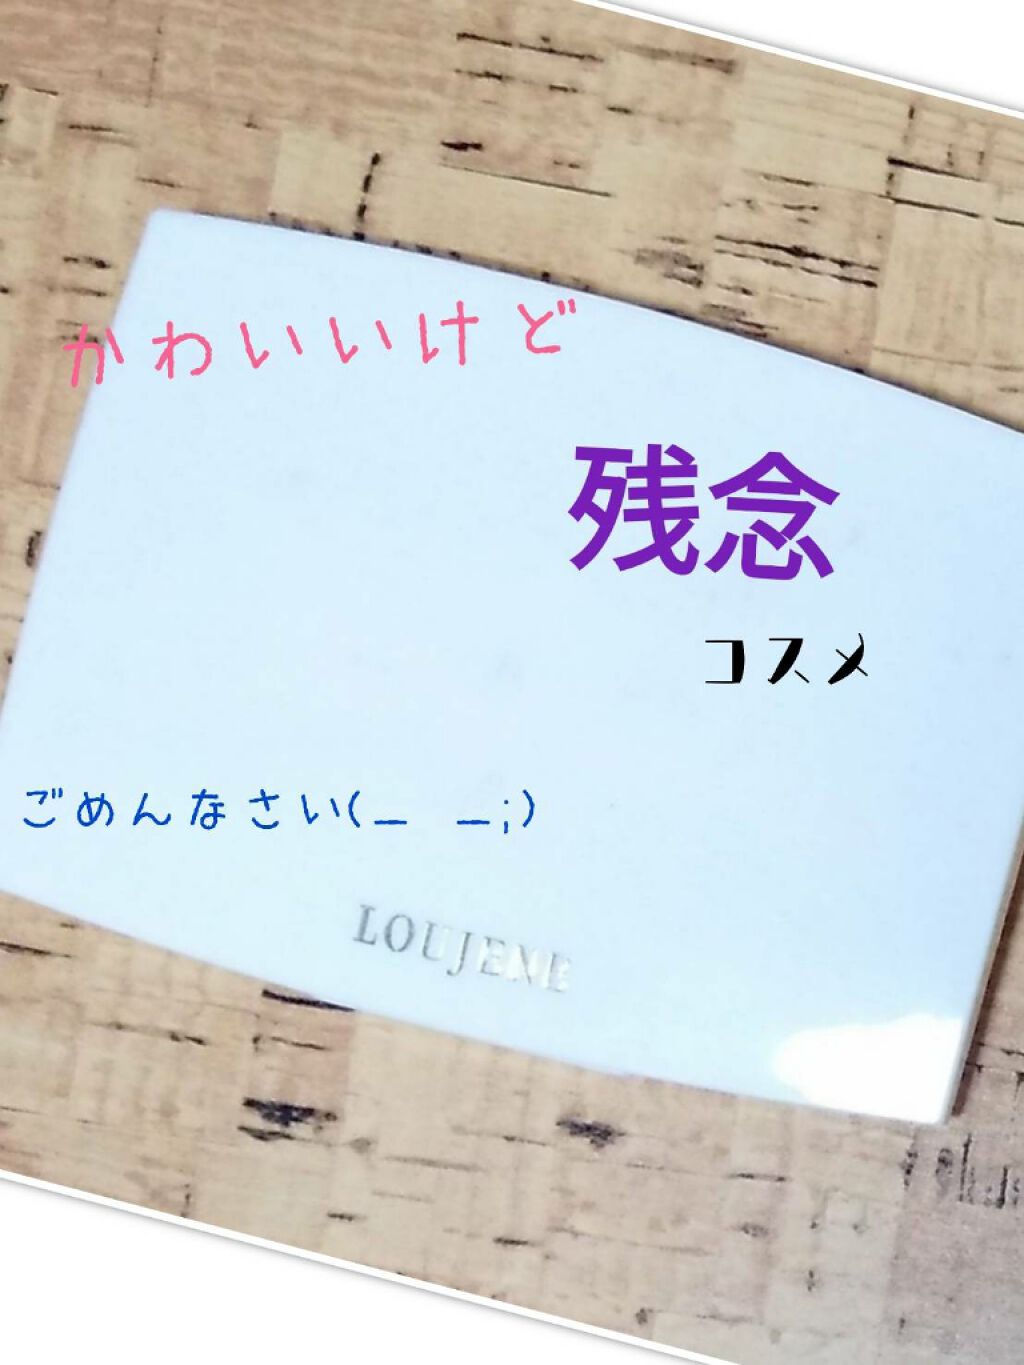 かわいいけど
残念
コスメ
ごめんなさい(_ _;)
LOUJENE